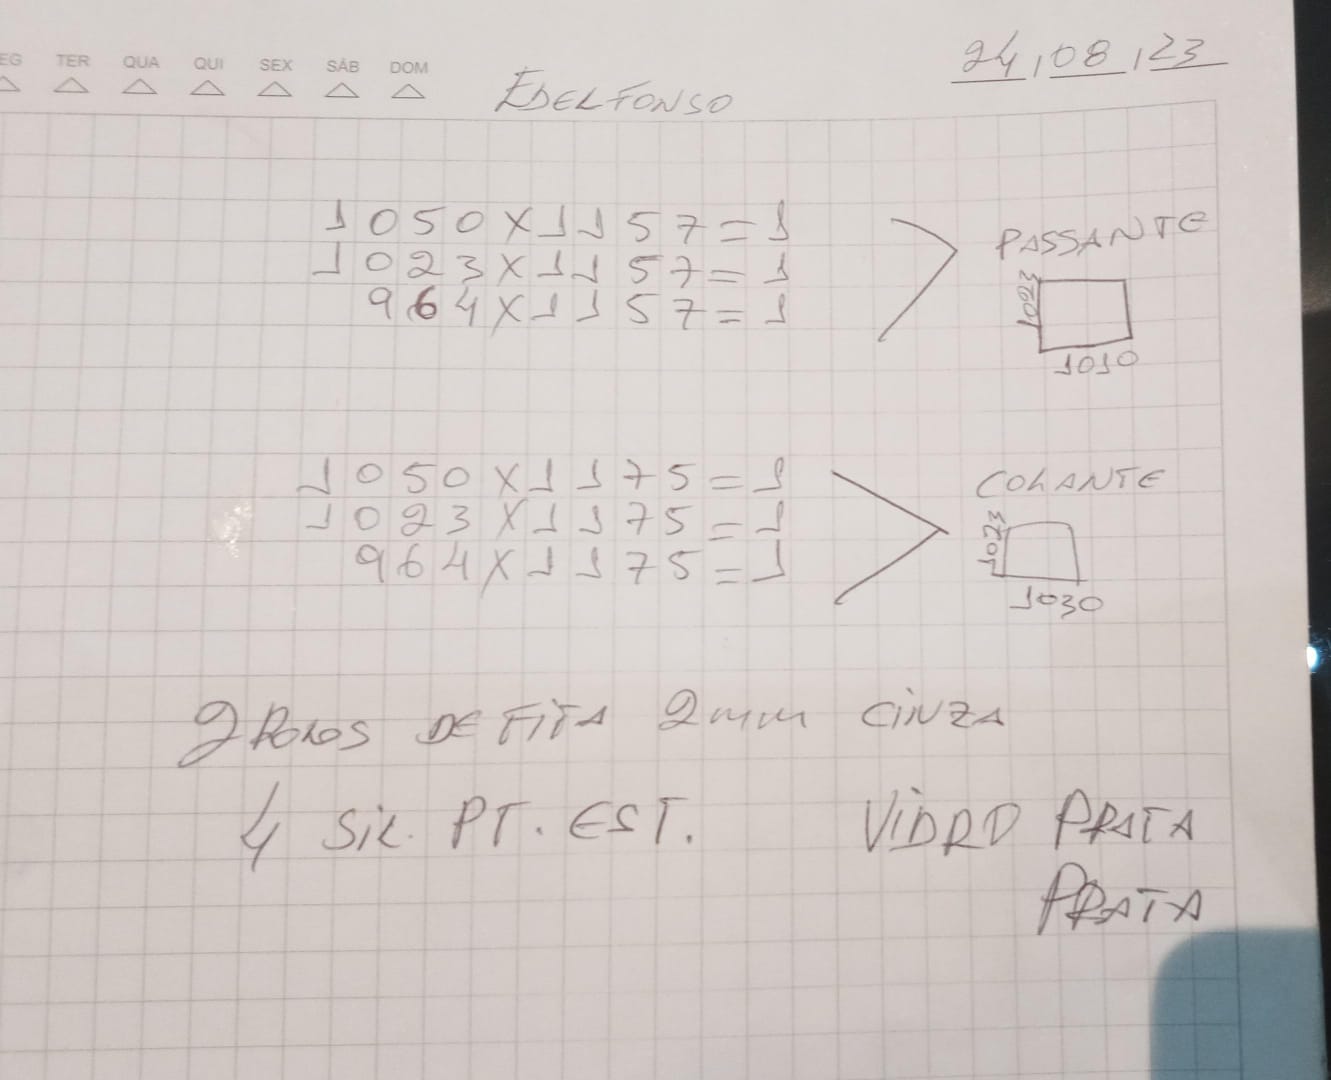 EG TER QUA QUI SEX SÁB DOM
24,08,23
EDELFONSO
1050X1157=1
1023X1157=1
964X1157=1
PASSANTE
1023
1010
1050X1175=1
1023X1175=1
964X1175=1
COLANTE
1023
1030
2 ROLOS DE FITA 2mm CINZA
4 SIL. PT. EST. VIDRO PRATA
PRATA